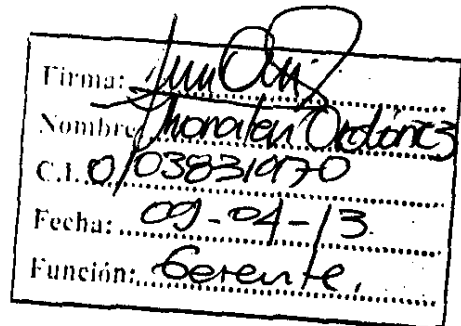 Firma:
Nombre Jhonatan Ordóñez
C.I. 0103831970
Fecha: 09-04-13
Función: Gerente.